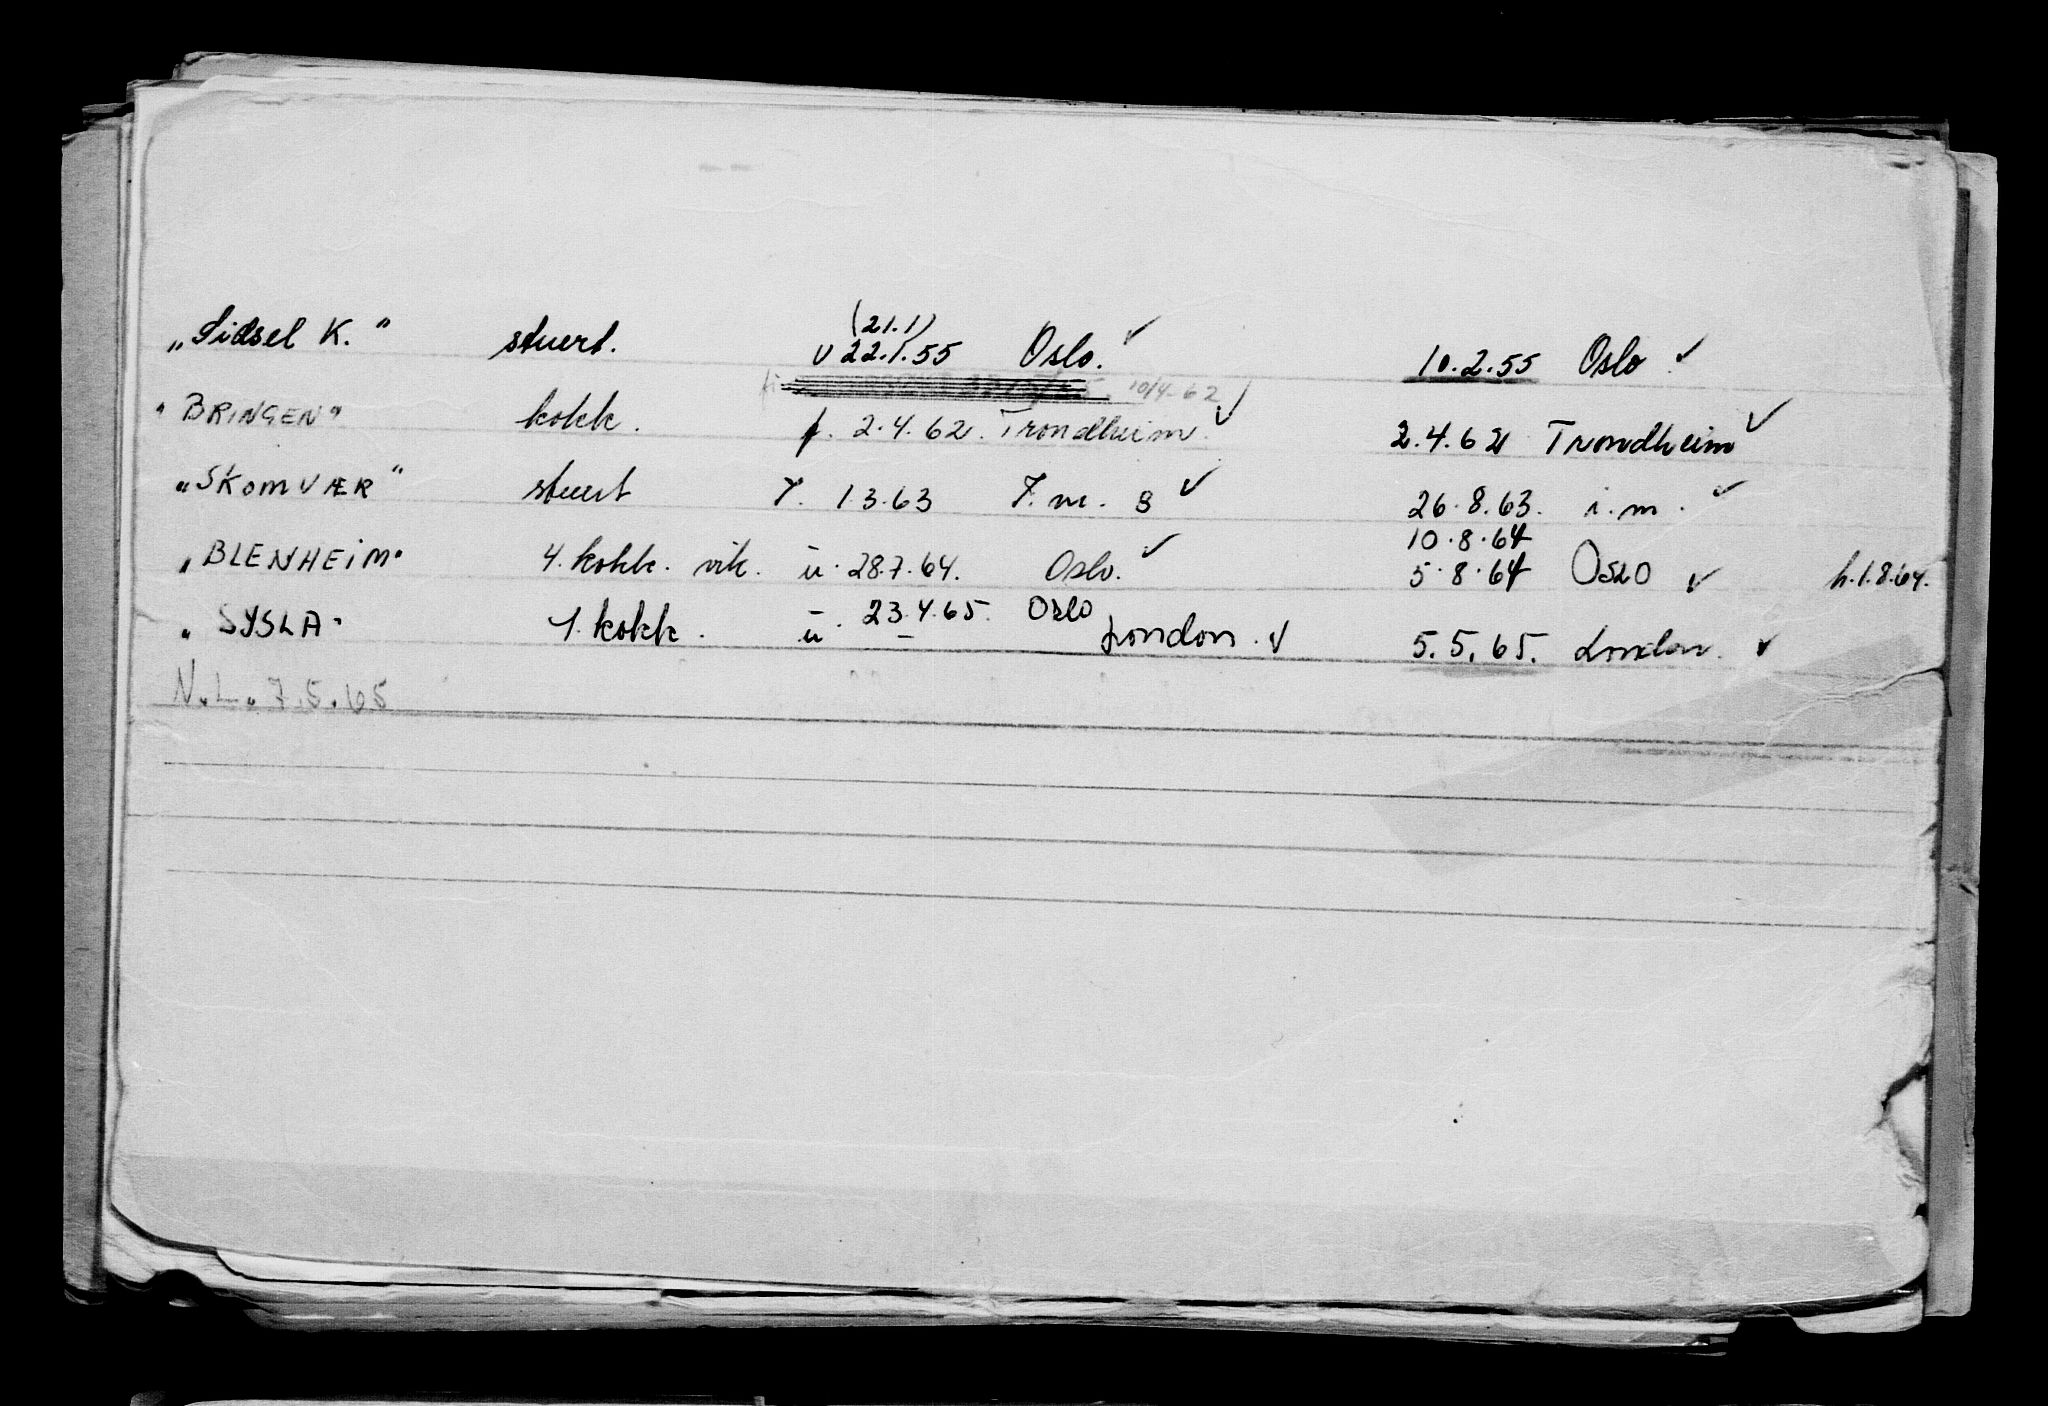 (21.1)
„Sidsel K." stuert. v 22.1.55 Oslo. ✓ 10.2.55 Oslo ✓
10/4-62
"BRINGEN" kokk. f. 2.4.62. Trondheim. ✓ 2.4.62 Trondheim ✓
„SKOMVÆR" stuert 7. 1 3.63 F. m. 8 ✓ 26.8.63. i.m. ✓
10.8.64
„BLENHEIM" 4. kokk. vik. ü. 28.7.64. Oslo. ✓ 5.8.64 OSLO ✓ h.1.8.64.
„SYSLA" 1. kokk. ü. 23.4.65. Oslo London. ✓ 5.5.65. London. ✓
N.L. 7.5.65